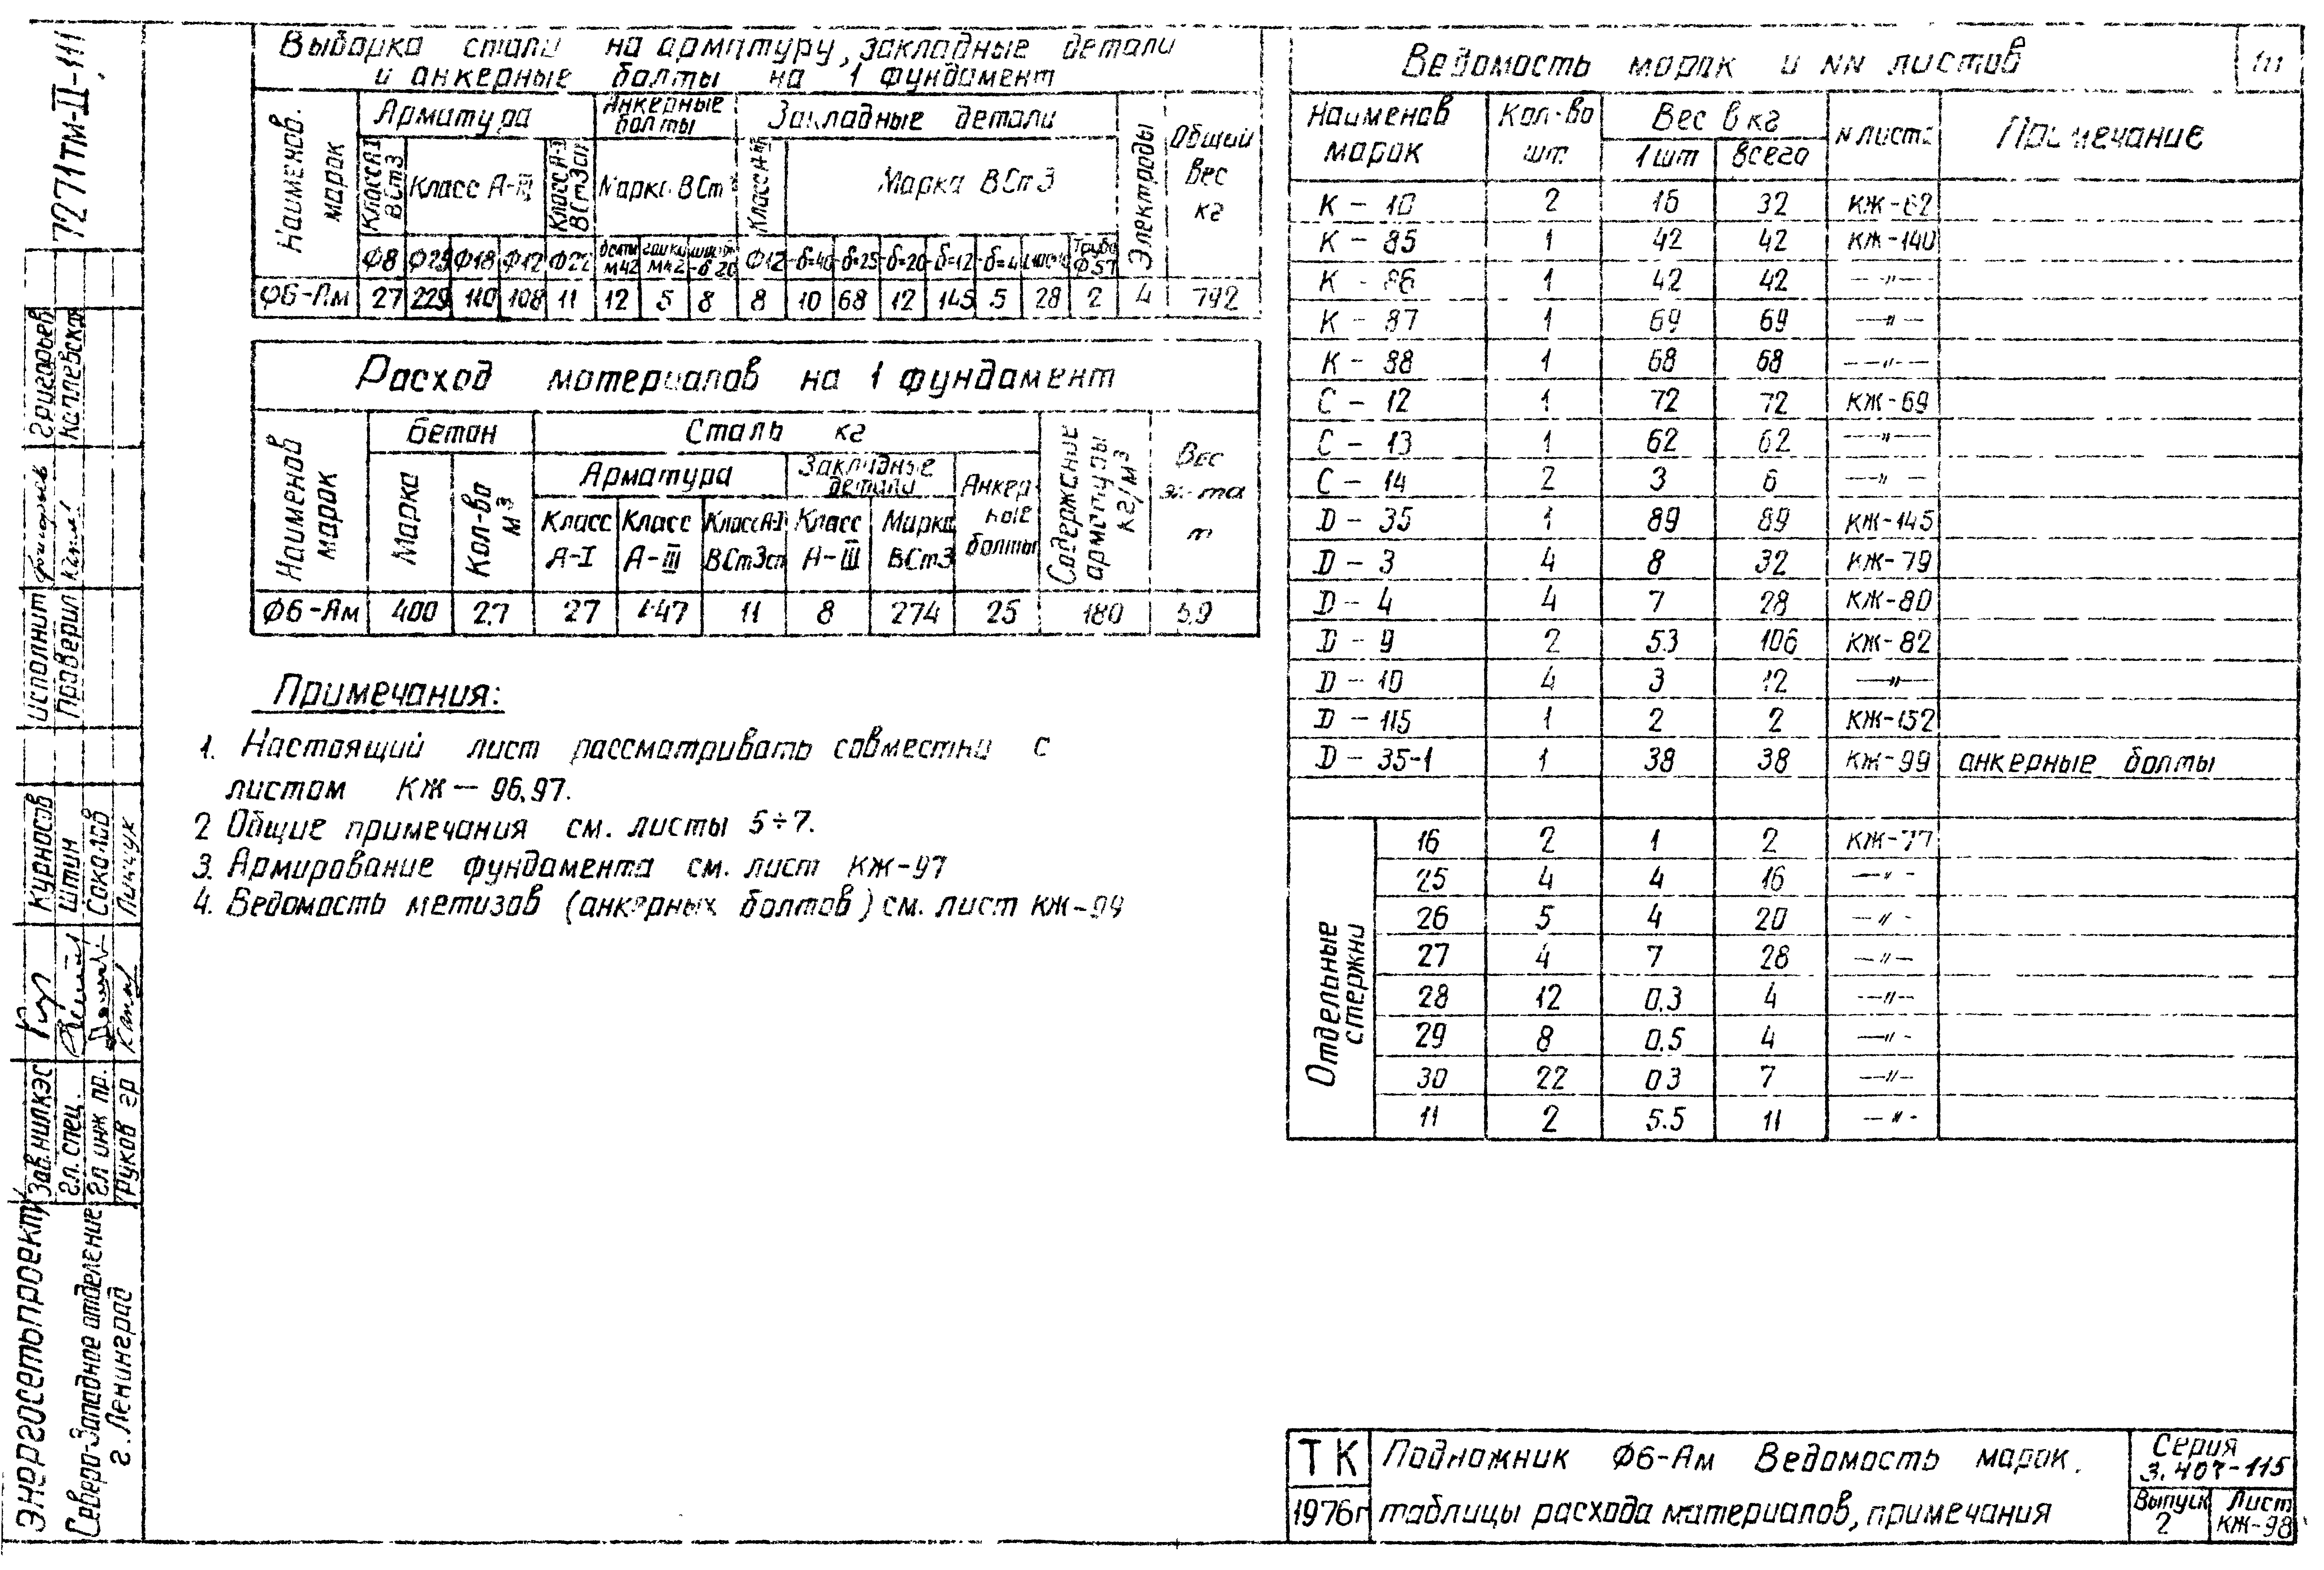 7271тм-II-111
Выборка стали на арматуру, закладные детали
и анкерные болты на 1 фундамент
Наименов. марок
Арматура
Анкерные болты
Закладные детали
Электроды
Общий вес кг
Класс А-I ВСт3
Класс А-III
Класс А-I ВСт3сп
Марка ВСт
Класс А-III
Марка ВСт3
Ф8 Ф25 Ф18 Ф12 Ф22 болты М42 гайки М42 -δ=20 Ф12 -δ=40 -δ=25 -δ=20 -δ=12 -δ=4 Труба Ф57
Ф6-Ам 27 229 110 108 11 12 5 8 8 10 68 12 145 5 28 2 4 792
Расход материалов на 1 фундамент
Наименов марок
Бетон
Сталь кг
Содержание арматуры кг/м³
Вес эл-та т
Марка
Кол-во м³
Арматура
Закладные детали
Анкерные болты
Класс А-I
Класс А-III
Класс А-I ВСт3сп
Класс А-III
Марка ВСт3
Ф6-Ам 400 2.7 27 447 11 8 274 25 180 6.9
Примечания:
1. Настоящий лист рассматривать совместно с
листом КЖ-96,97.
2 Общие примечания см. листы 5÷7.
3. Армирование фундамента см. лист КЖ-97
4. Ведомость метизов (анкерных болтов) см. лист КЖ-99
Ведомость марок и NN листов
111
Наименов марок
Кол-во шт.
Вес в кг
1 шт всего
N листа
Примечание
К-10 2 16 32 КЖ-62
К-85 1 42 42 КЖ-140
К-86 1 42 42 —"—
К-87 1 69 69 —"—
К-88 1 68 68 —"—
С-12 1 72 72 КЖ-69
С-13 1 62 62 —"—
С-14 2 3 6 —"—
D-35 1 89 89 КЖ-145
D-3 4 8 32 КЖ-79
D-4 4 7 28 КЖ-80
D-9 2 53 106 КЖ-82
D-10 4 3 12 —"—
D-115 1 2 2 КЖ-152
D-35-1 1 38 38 КЖ-99 анкерные болты
Отдельные стержни
16 2 1 2 КЖ-77
25 4 4 16 —"—
26 5 4 20 —"—
27 4 7 28 —"—
28 12 0.3 4 —"—
29 8 0.5 4 —"—
30 22 0.3 7 —"—
11 2 5.5 11 —"—
ТК
1976г
Подножник Ф6-Ам Ведомость марок.
таблицы расхода материалов, примечания
Серия
3.407-115
Выпуск
2
Лист
КЖ-98
Энергосетьпроект
Северо-Западное отделение
г. Ленинград
Зав.НИЛКЭС Курносов
Гл. спец. Штин
Гл инж пр. Соколов
Руков гр
Исполнит Григорьев
Проверил